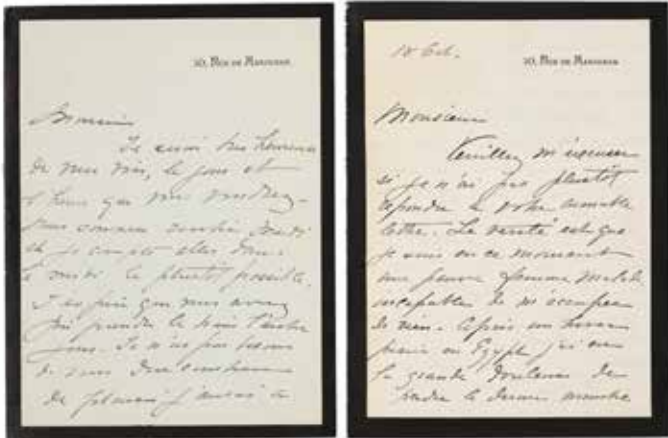 10, Rue de Marignan
Monsieur
Je serai très heureuse
de vous voir, le jour et
l'heure que vous voudrez
vous comme
je compte aller dans
le midi le plustôt possible.
J'espère que vous avez
pu prendre le train l'autre
jour. Je n'ai pas besoin
de vous dire combien
de plaisir j'aurai à
18 Oct.
10, Rue de Marignan
Monsieur
Veuillez m'excuser
si je n'ai pas plustôt
répondu à votre aimable
lettre. La vérité est que
je suis en ce moment
une pauvre femme malade
incapable de m'occuper
de rien. Après un hiver
passé en Egypte j'ai eu
la grande douleur de
perdre le dernier membre